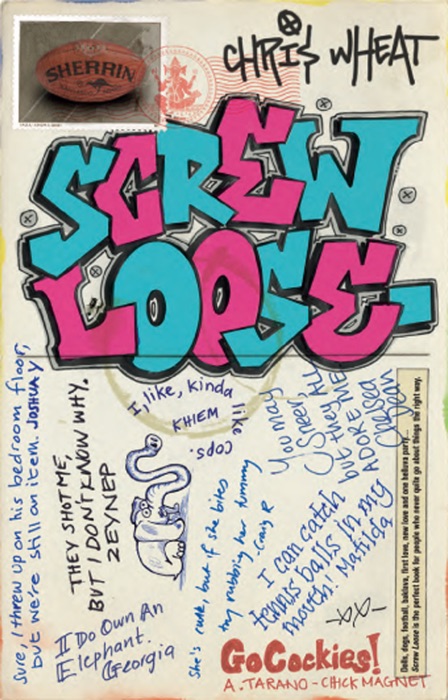 CHRIS WHEAT
SHERRIN
SCREW
LOOSE.
Sure, I threw up on his bedroom floor,
but we're still an item. JOSHUA Y
THEY SHOT ME,
BUT I DON'T KNOW WHY.
ZEYNEP
I, like, kinda like
cops.
KHIEM
You may
Sneer,
but they ALL
ADORE ME
Chelsea
Dean
She's rude, but if she bites
try rubbing her tummy
-Craig R
I can catch
tennis balls in my
mouth! Matilda
I Do Own An
Elephant.
Georgia
Dolls, dogs, football, baklava, first love, new love and one helluva party...
Screw Loose is the perfect book for people who never quite go about things the right way.
Go Cockies!
A. TARANO - CHICK MAGNET